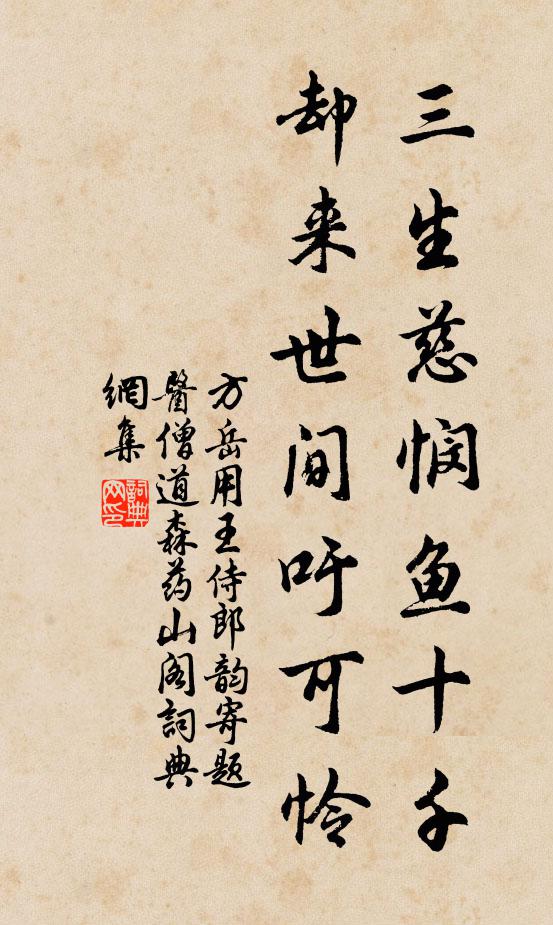 三生慈悯鱼十千
却来世间吁可怜
方岳用王侍郎韵寄题
医僧道森药山阁詞典
網集
詞典
网印